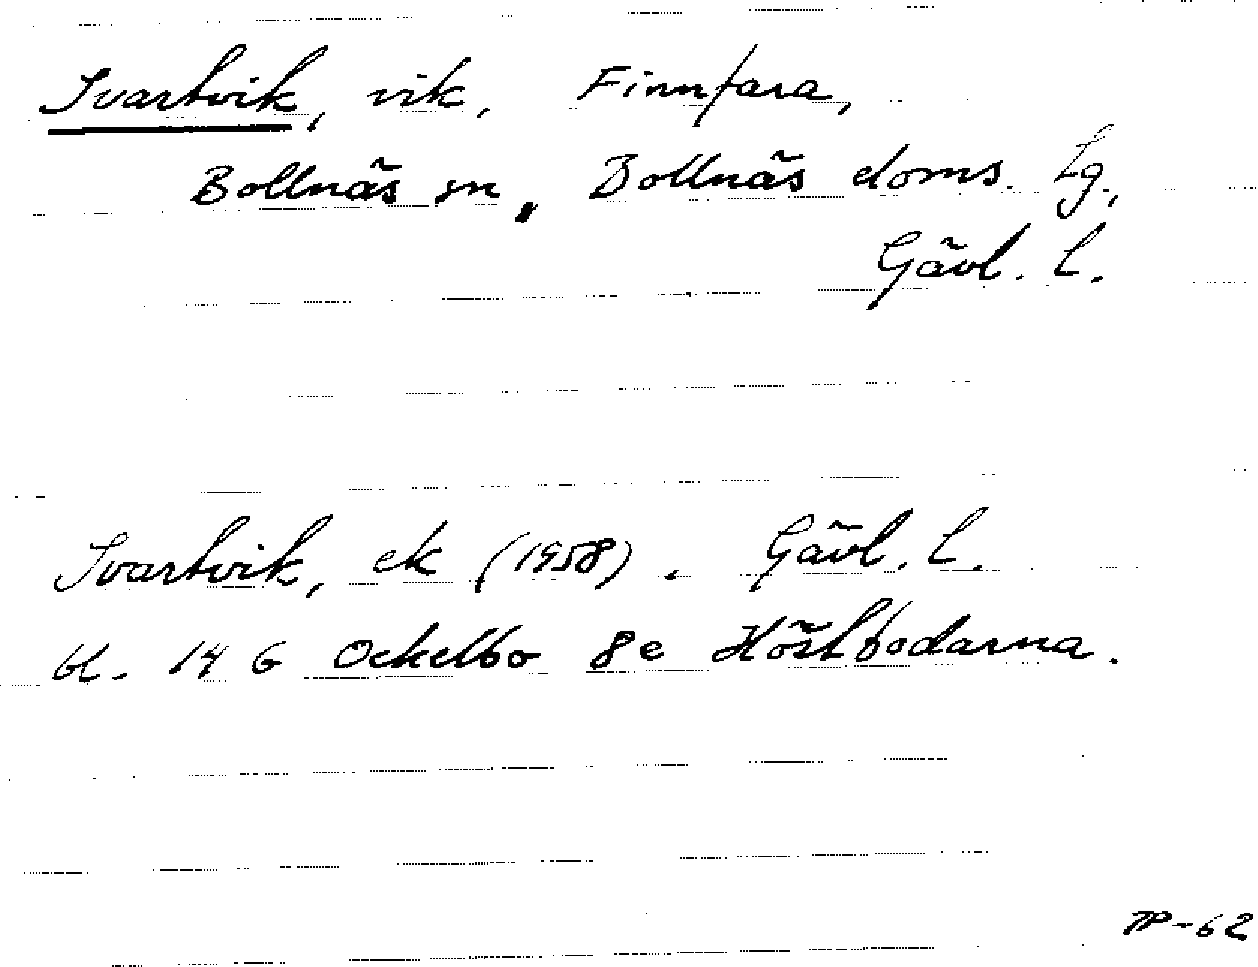 Svartvik, vik, Finnfara,
Bollnäs sn, Bollnäs doms. Lg.,
Gävl. l.
Svartvik, ek (1958). Gävl. l.
bl. 14 G Ockelbo 8e Höstbodarna.
TP-62